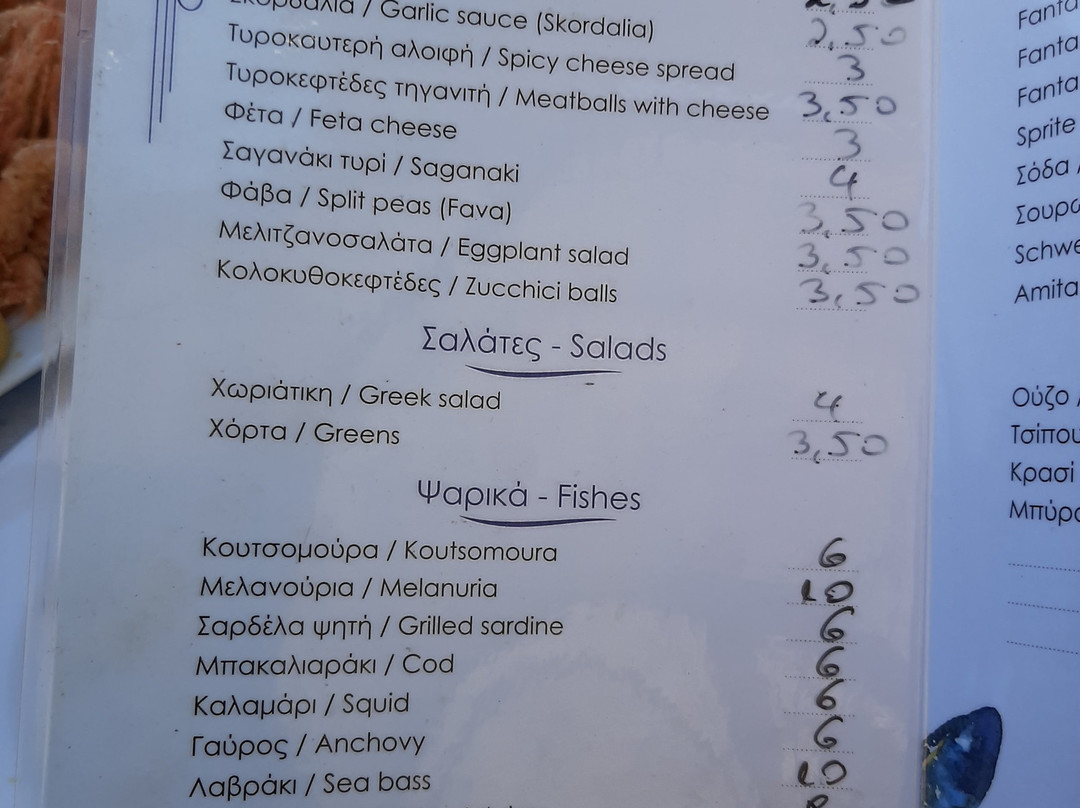 Σκορδαλιά / Garlic sauce (Skordalia) 2,50
Τυροκαυτερή αλοιφή / Spicy cheese spread 3
Τυροκεφτέδες τηγανιτή / Meatballs with cheese 3,50
Φέτα / Feta cheese 3
Σαγανάκι τυρί / Saganaki 4
Φάβα / Split peas (Fava) 3,50
Μελιτζανοσαλάτα / Eggplant salad 3,50
Κολοκυθοκεφτέδες / Zucchici balls 3,50
Σαλάτες - Salads
Χωριάτικη / Greek salad 4
Χόρτα / Greens 3,50
Ψαρικά - Fishes
Κουτσομούρα / Koutsomoura 6
Μελανούρια / Melanuria 10
Σαρδέλα ψητή / Grilled sardine 6
Μπακαλιαράκι / Cod 6
Καλαμάρι / Squid 6
Γαύρος / Anchovy 6
Λαβράκι / Sea bass 10
Fanta
Fanta
Fanta
Sprite
Σόδα /
Schwe
Amita
Ούζο /
Τσίπου
Κρασί
Μπύρα